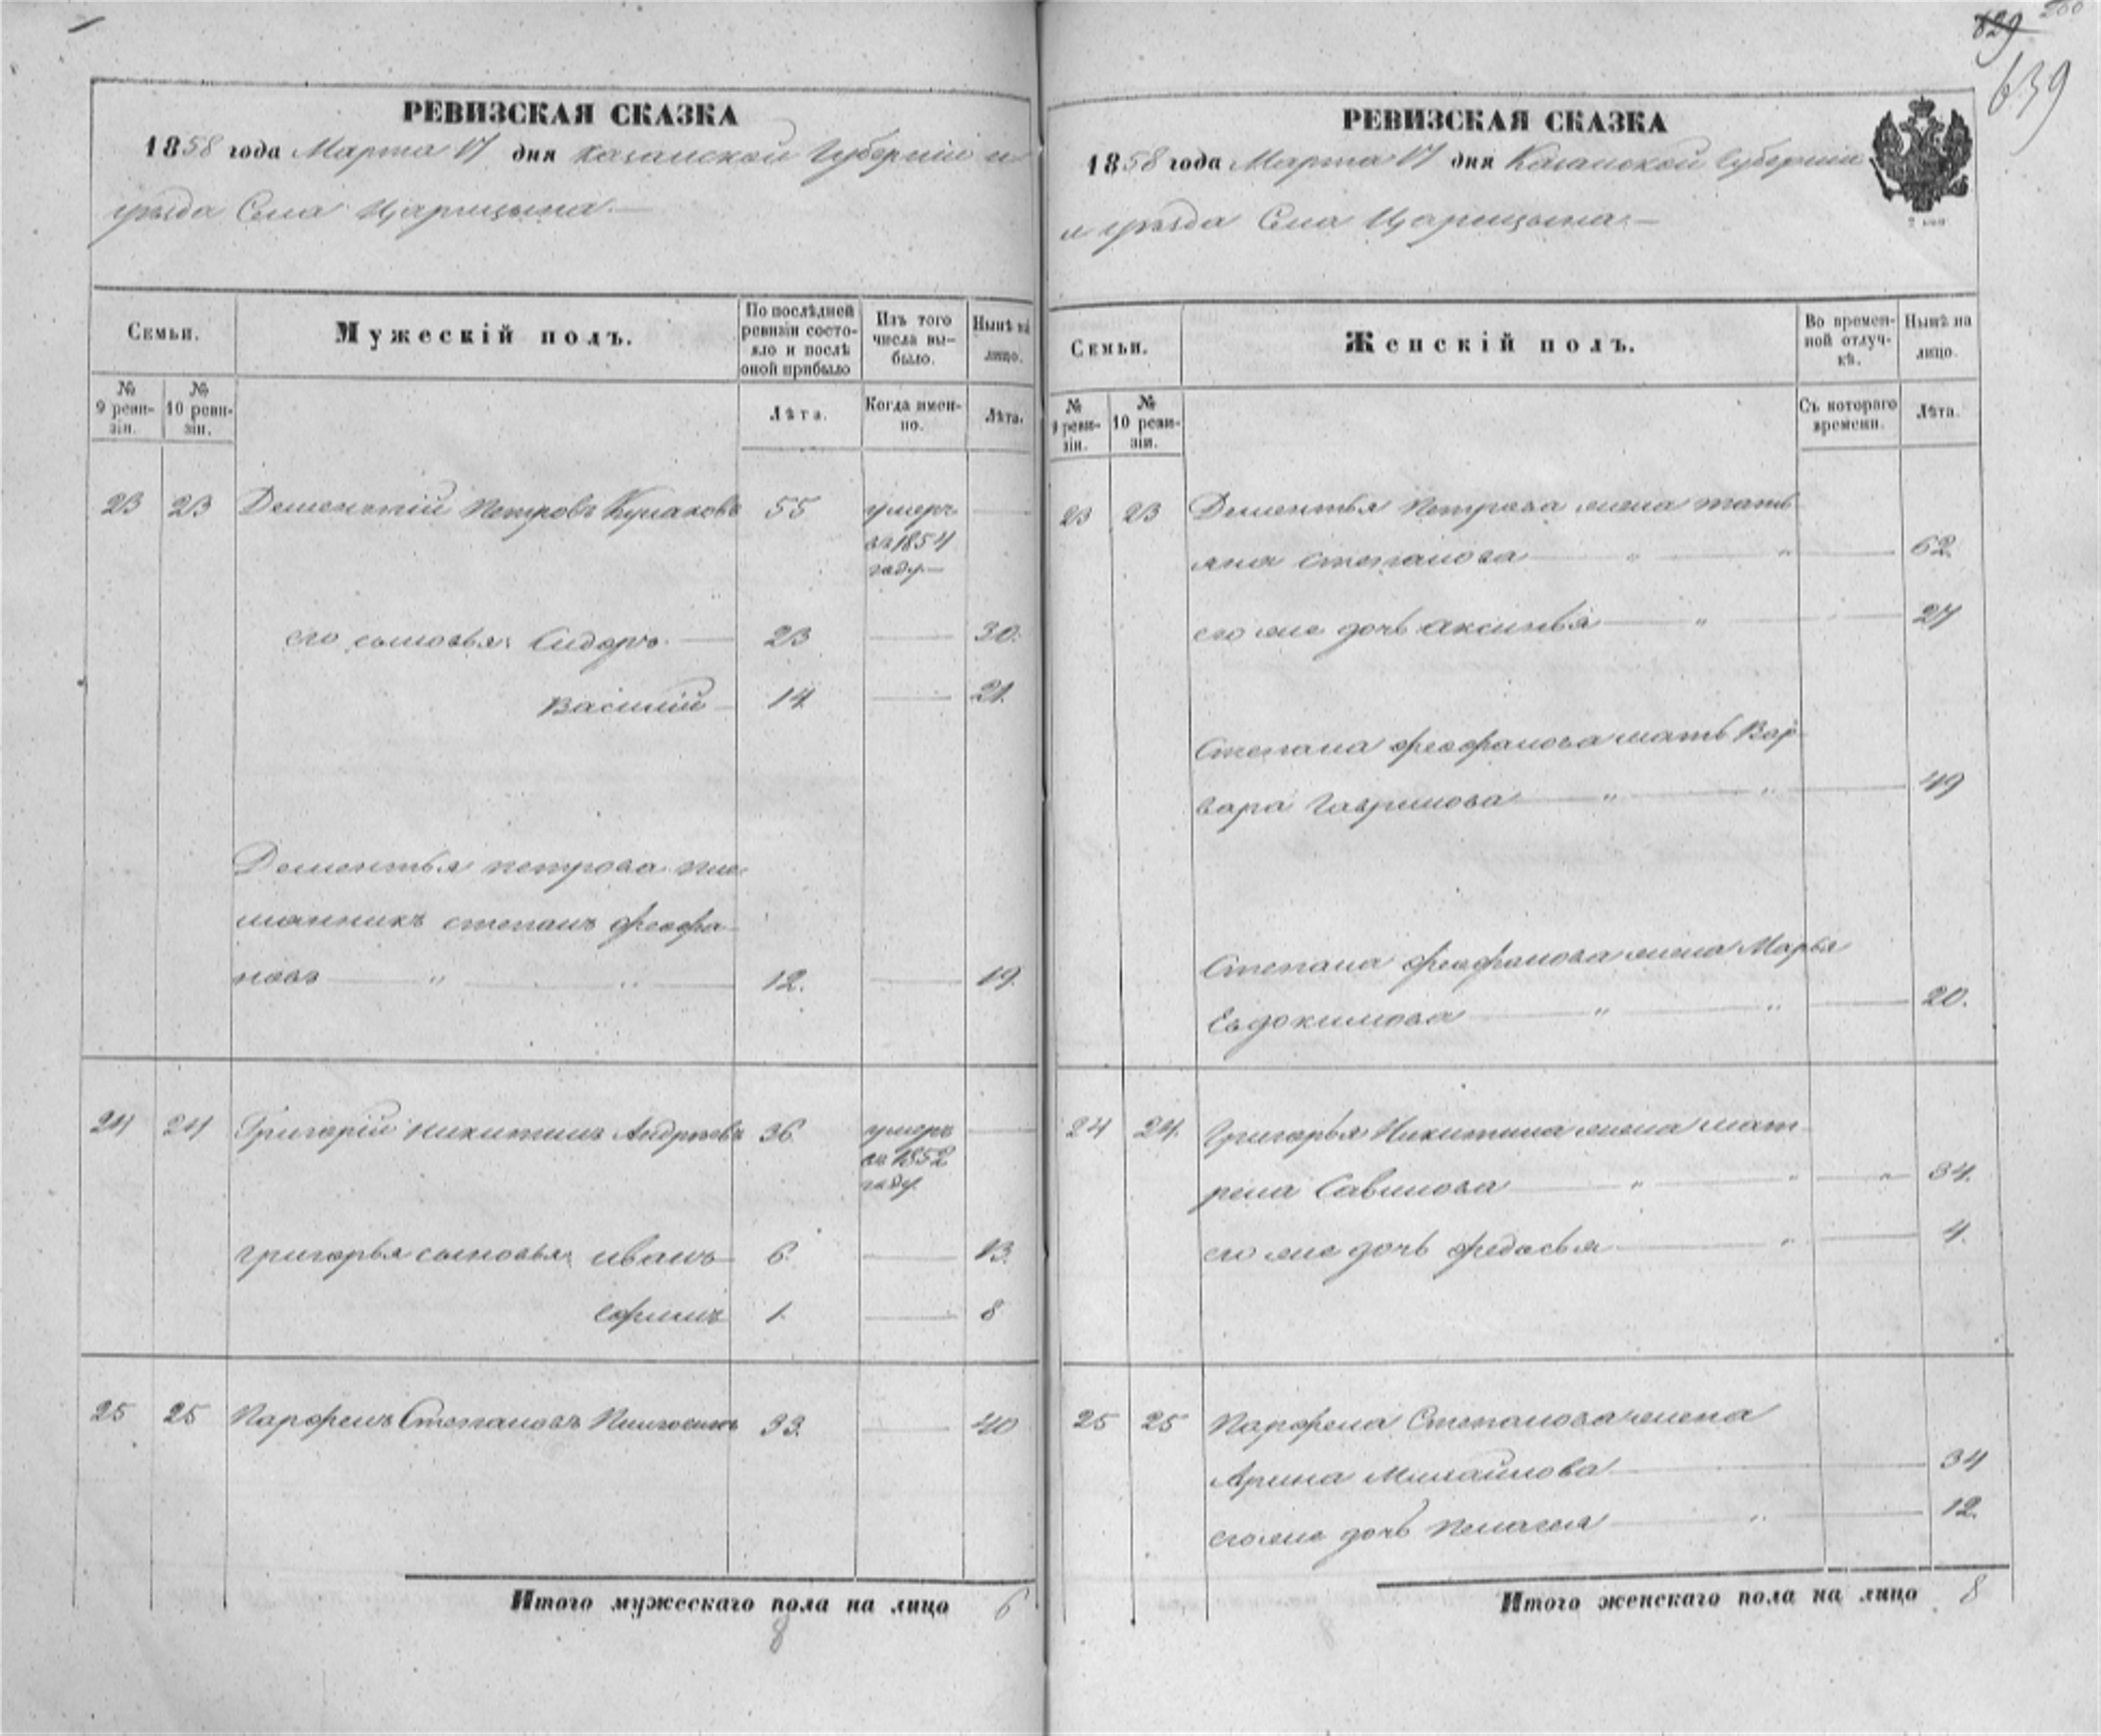 629
639
РЕВИЗСКАЯ СКАЗКА
1858 года Марта 17 дня Казанской Губерніи и
уѣзда Села Царицына
Семьи.
Мужескій полъ.
По послѣдней ревизіи состояло и послѣ оной прибыло
Изъ того числа выбыло.
Нынѣ на лицо.
№ 9 ревизіи.
№ 10 ревизіи.
Лѣта.
Когда именно.
Лѣта.
23 23 Дементій Петровъ Кулаковъ 55 умеръ
въ 1854
году
его сыновья: Сидоръ 23 30.
Василій 14 21.
Дементья петрова пле
мянникъ степанъ феофа
новъ 12. 19.
24 24 Григорій Никитинъ Андреевъ 36 умеръ
въ 1852
году
григорья сыновья: иванъ 6. 13.
ефимъ 1. 8
25 25 Парфенъ Степановъ 33. 40
Итого мужескаго пола на лицо 6
8
РЕВИЗСКАЯ СКАЗКА
1858 года Марта 17 дня Казанской Губерніи
и уѣзда Села Царицына
Семьи.
Женскій полъ.
Во временной отлучкѣ.
Нынѣ на лицо.
№ 9 ревизіи.
№ 10 ревизіи.
Съ котораго времени.
Лѣта.
23 23 Дементья Петрова жена тать
яна степанова 62.
его же дочь аксинья 27
Степана феофанова мать Вар
вара Гаврилова 49
Степана феофанова жена Марья
Евдокимова 20.
24 24. Григорья Никитина жена мат
рена Савинова 34.
его же дочь федосья 4.
25 25 Парфена Степанова жена
Арина Михайлова 34
его же дочь Пелагея 12.
Итого женскаго пола на лицо 8